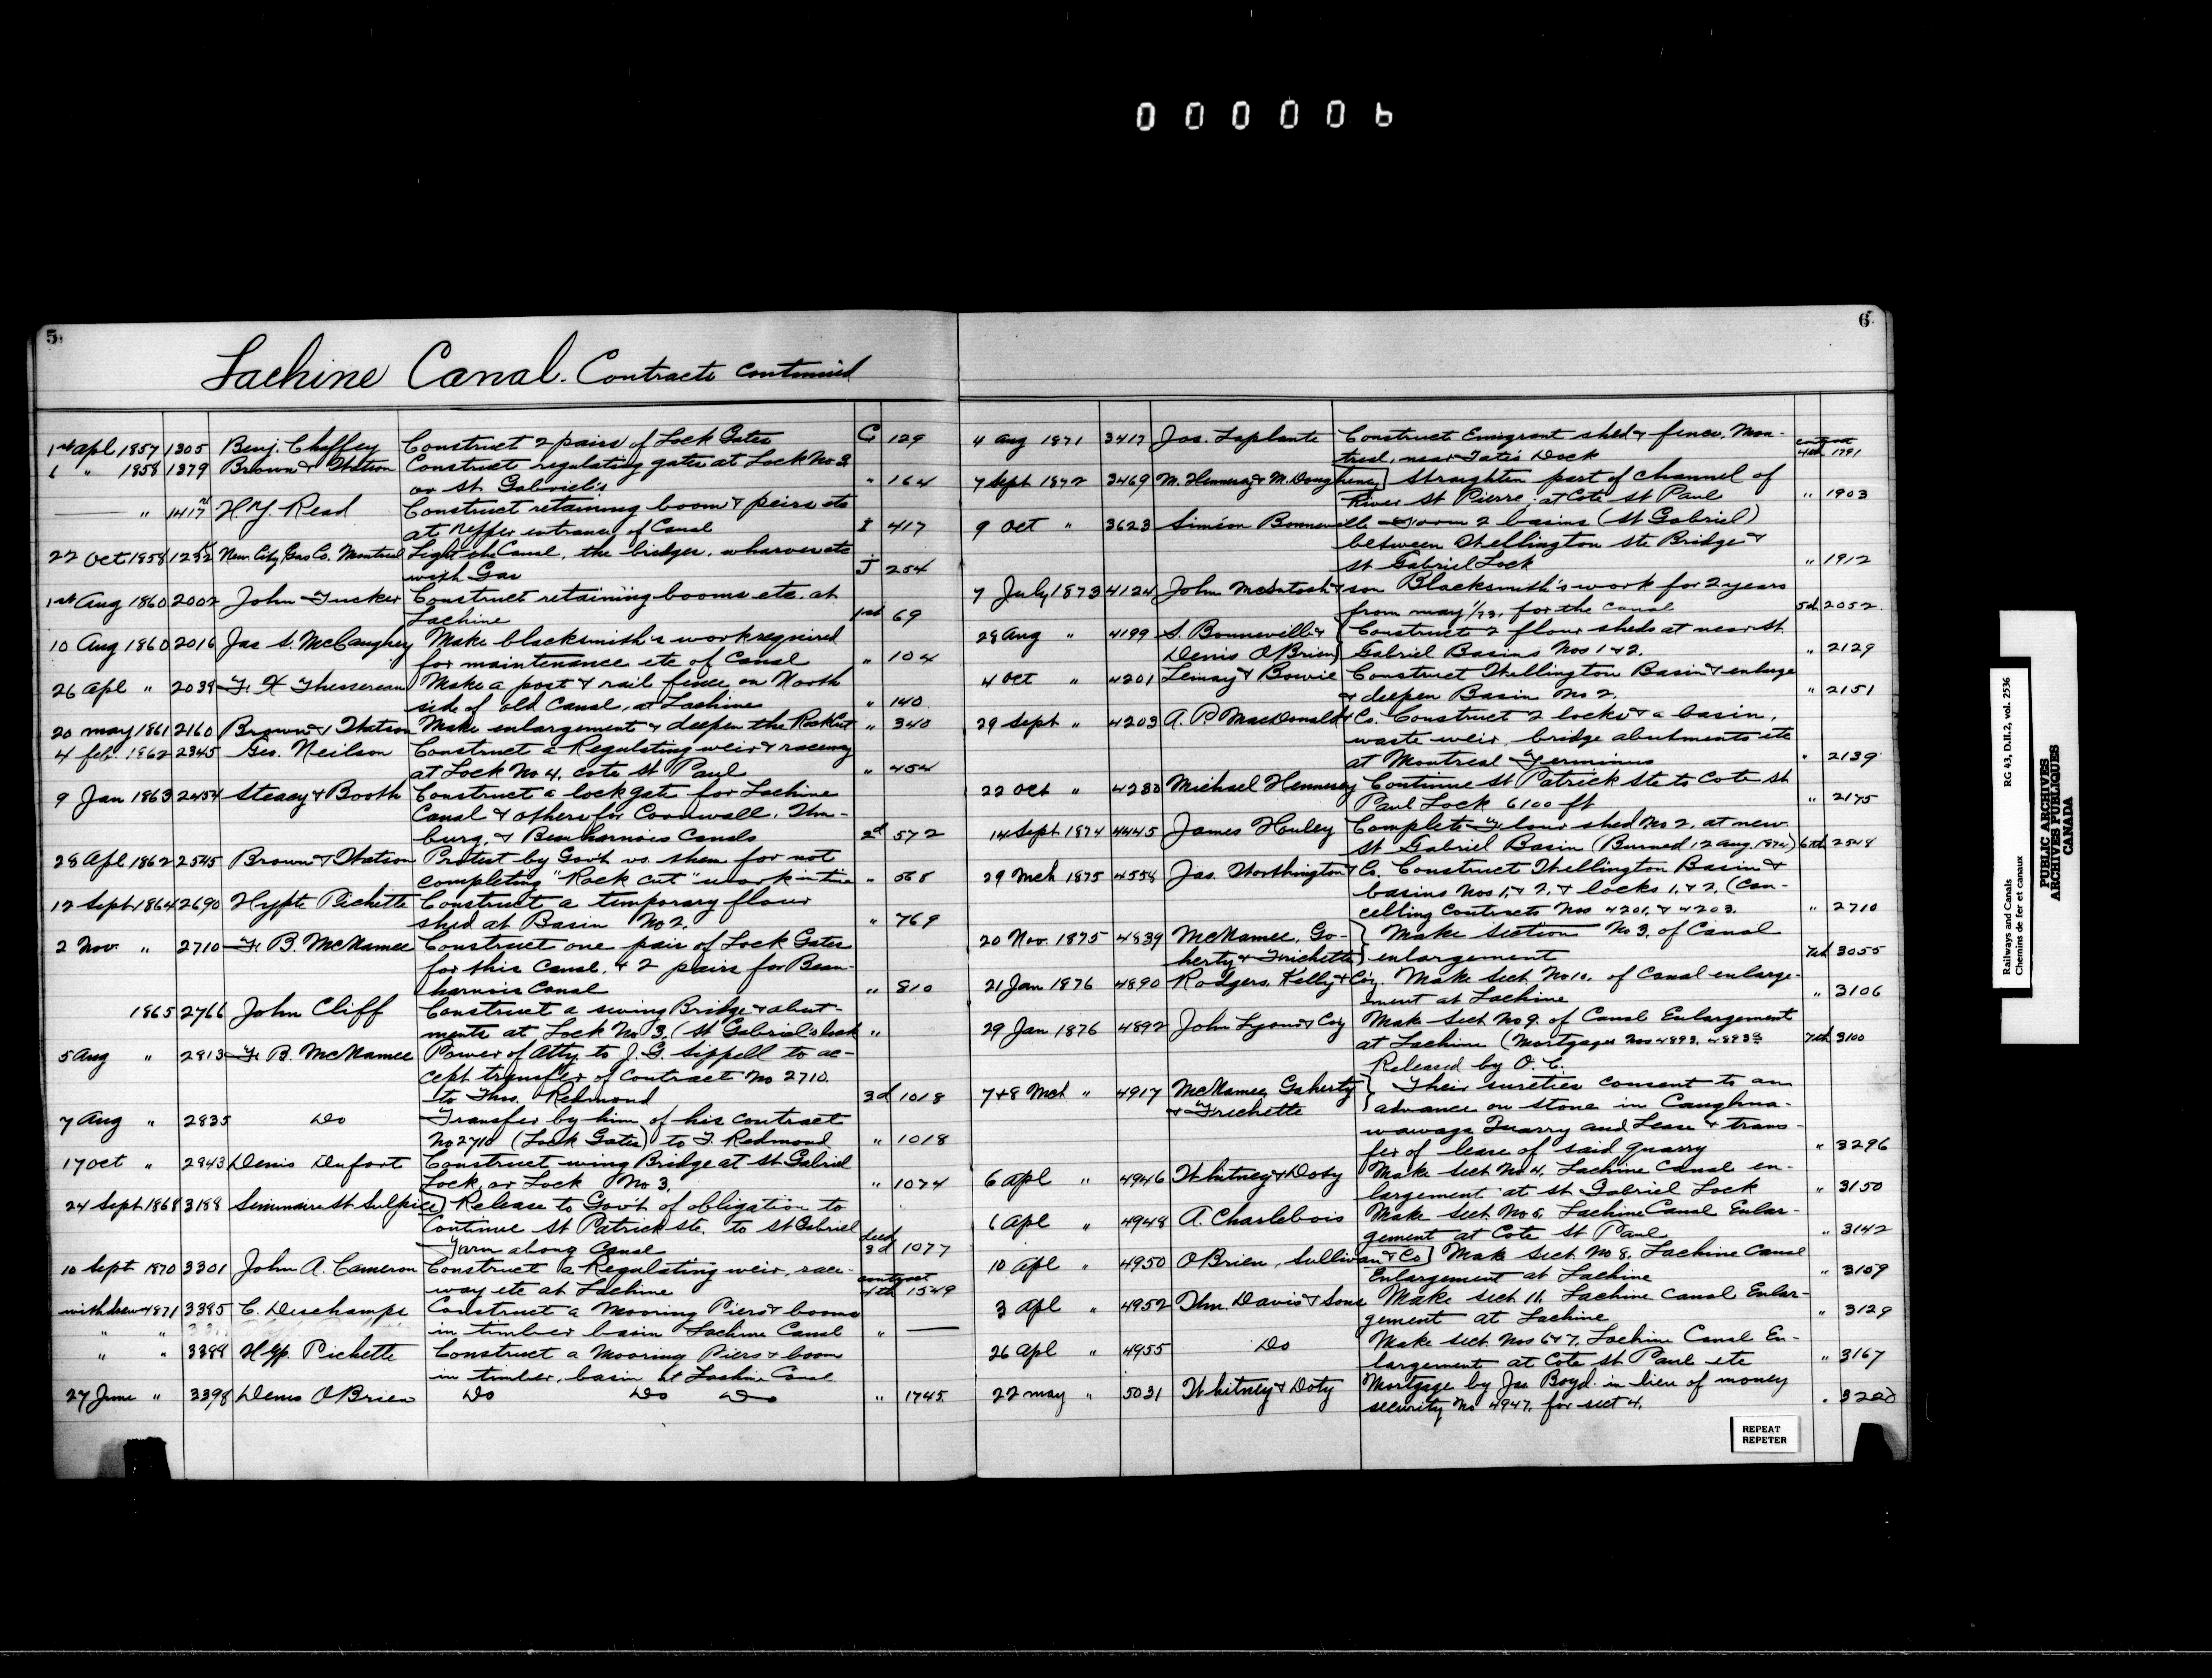 000006
5.
Lachine Canal. Contracts continued
1st Apl 1857 1305 Benj. Chaffey Construct 2 pairs of Lock Gates G 129
1 " 1858 1379 Brown & Watson Construct regulating gates at Lock No 3
or St Gabriel's " 164
" 1417 H. Y. Read Construct retaining boom & peirs etc
at Upper entrance of Canal I 417
22 Oct 1858 New City Gas Co. Montreal Light the Canal, the bridges, wharves etc
with Gas J 254
1st Aug 1860 2002 John Tucker Construct retaining booms etc. at
Lachine 1st 69
10 Aug 1860 2016 Jas S. McCaughey Make blacksmith's work required
for maintenance etc of Canal " 104
26 Apl " 2039 F. X Thessereau Make a post & rail fence on North
side of old Canal, at Lachine " 140
20 May 1861 2160 Brown & Watson Make enlargement & deepen the Rock Cut " 340
4 feb. 1862 2345 Geo. Neilson Construct a Regulating weir & raceway
at Lock No 4. Cote St Paul " 454
9 Jan 1863 2454 Steacy & Booth Construct a lock gate for Lachine
Canal & others for Cornwall, Wm-
burg, & Beauharnois Canals 2d 572
28 Apl 1862 2545 Brown & Watson Protest by Gov't vs. them for not
completing "Rock cut" work in time "
12 Sept 1864 2690 Hypte Pichette Construct a temporary flour
shed at Basin No 2. " 769
2 Nov. " 2710 F. B. McNamee Construct one pair of Lock Gates
for this Canal, & 2 pairs for Beau-
harnois Canal " 810
1865 2766 John Cliff Construct a swing Bridge & abut-
ments at Lock No 3. (St Gabriel's Lock "
5 Aug " 2813 F. B. McNamee Power of Atty. to J. G. Sippell to ac-
cept transfer of Contract No 2710.
to Thos. Redmond 3d 1018
7 Aug " 2835 Do Transfer by him of his contract
No 2710 (Lock Gates) to T. Redmond " 1018
17 Oct " 2943 Denis Dufort Construct wing Bridge at St Gabriel
Lock, or Lock No 3. " 1074
24 Sept 1868 3189 Seminaire St Sulpice) Release to Gov't of obligation to
Continue St Patrick Ste. to St Gabriel
Farm along Canal deed 3d 1077
10 Sept 1870 3301 John A. Cameron Construct a Regulating weir, race-
way etc at Lachine contract 4th 1549
withdrew 4871 3385 C. Deschamps Construct a Mooring Piers & booms
in timber basin Lachine Canal " —
" " 3388 Hyp. Pichette Construct a Mooring Piers & boom
in timber, basin at Lachine Canal
27 June " 3398 Denis O'Brien Do Do Do " 1745.
6.
4 Aug 1871 3417 Jos. Laplante Construct Emigrant shed & fence, Mon-
treal, near Tate's Dock contract 4th 1791
7 Sept 1872 3469 M. Hennesy & M. Dougheney] Straighten part of channel of
River St Pierre; at Cote St Paul " 1903
9 Oct " 3623 Siméon Bonneville 2 basins (St Gabriel)
between Wellington Ste Bridge &
St Gabriel Lock " 1912
7 July 1873 4124 John McIntosh & son Blacksmith's work for 2 years
from May 1/73. for the Canal 5th 2052.
28 Aug " 4199 S. Bonneville & Construct 2 flour sheds at near St
Denis O'Brien} Gabriel Basins Nos 1 & 2. " 2129
4 Oct " 4201 Lemay & Bowie Construct Wellington Basin & enlarge
& deepen Basin No 2. " 2151
29 Sept " 4203 A. P. MacDonald & Co. Construct 2 locks & a basin,
waste weir, bridge abutments etc
at Montreal Terminus " 2139
22 Oct " 4280 Michael Hennesy Continue St Patrick Ste to Cote St
Paul Lock 6100 ft " 2175
14 Sept 1874 4445 James Howley Complete Flour shed No 2. at new
St Gabriel Basin (Burned 12 Aug. 1874) 6th 2548
29 Mch 1875 4558 Jas. Worthington & Co. Construct Wellington Basin &
basins Nos 1, & 2, & locks 1, & 2, (Can-
celling Contracts Nos 4201, & 4203. " 2710
20 Nov. 1875 4839 McNamee, Ga- } Make Section No 3, of Canal
herty & Frichette} enlargement 7th 3055
21 Jan 1876 4890 Rodgers, Kelly & Coy. Make Sect No 10. of Canal enlarge-
ment at Lachine " 3106
29 Jan 1876 4892 John Lyons & Coy Make Sect No 9. of Canal Enlargement
at Lachine (Mortgages Nos 4893, 4893½ 7th 3100
Released by O. C.
7 & 8 Mch " 4917 McNamee, Gaherty } Their sureties consent to an
& Frichette } advance on stone in Caughna-
wawaga Quarry and Lease & trans-
fer of lease of said quarry " 3296
6 Apl " 4946 Whitney & Doty Make Sect No 4. Lachine Canal en-
largement at St Gabriel Lock " 3150
6 Apl " 4948 A. Charlebois Make Sect. No 5. Lachine Canal Enlar-
gement at Cote St Paul " 3142
10 Apl " 4950 O'Brien, Sullivan & Co] Make Sect. No 8. Lachine Canal
Enlargement at Lachine " 3109
3 Apl " 4952 Wm. Davis & Sons Make Sect 11. Lachine Canal Enlar-
gement at Lachine " 3129
26 Apl " 4955 Do Make Sect. Nos 6 & 7. Lachine Canal En-
largement at Cote St Paul etc " 3167
22 May " 5031 Whitney & Doty Mortgage by Jas. Boyd in lieu of money
security No 4947. for Sect 4. "
REPEAT
REPETER
Railways and Canals RG 43, D.II.2, vol. 2536
Chemins de fer et canaux
PUBLIC ARCHIVES
ARCHIVES PUBLIQUES
CANADA